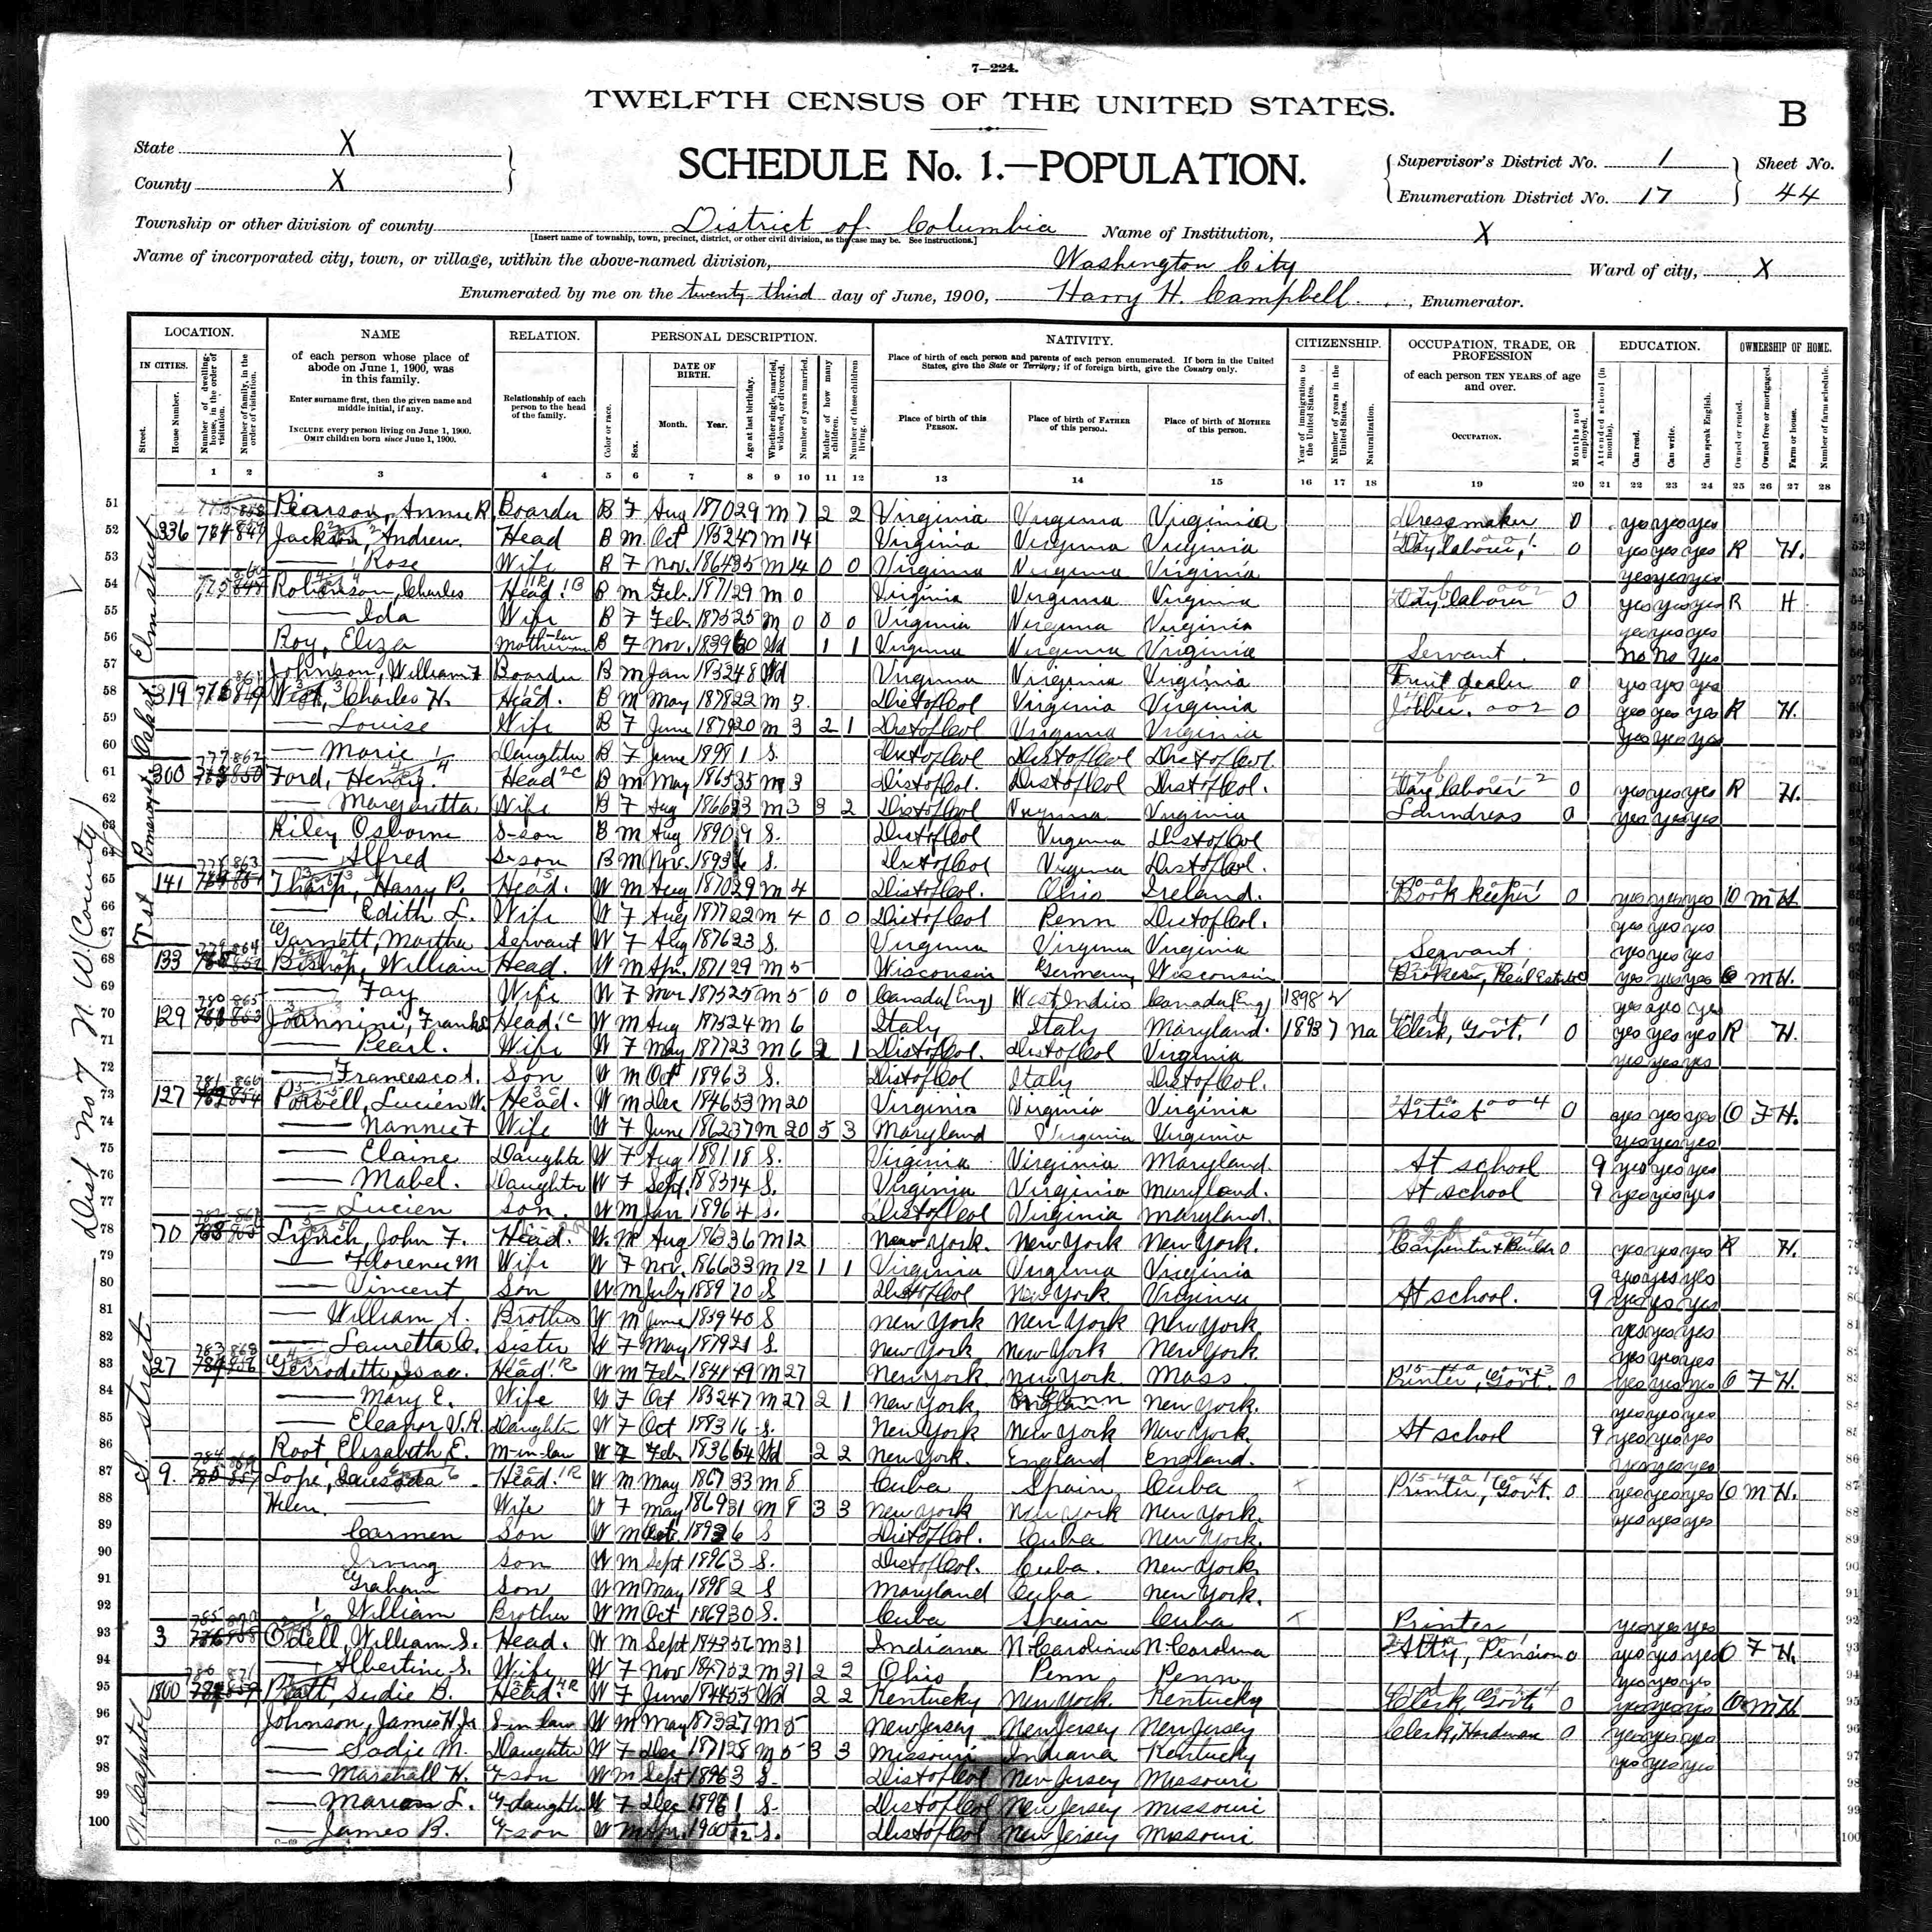 7—224.
TWELFTH CENSUS OF THE UNITED STATES.
B
State X
SCHEDULE No. 1.—POPULATION.
County X
Supervisor's District No. 1
Sheet No.
Enumeration District No. 17
44
Township or other division of county District of Columbia Name of Institution, X
[Insert name of township, town, precinct, district, or other civil division, as the case may be. See instructions.]
Name of incorporated city, town, or village, within the above-named division, Washington City Ward of city, X
Enumerated by me on the twenty third day of June, 1900, Harry H. Campbell, Enumerator.
LOCATION. NAME RELATION. PERSONAL DESCRIPTION. NATIVITY. CITIZENSHIP. OCCUPATION, TRADE, OR PROFESSION EDUCATION. OWNERSHIP OF HOME.
IN CITIES.
Street.
House Number.
Number of dwelling-house, in the order of visitation.
Number of family, in the order of visitation.
of each person whose place of abode on June 1, 1900, was in this family.
Enter surname first, then the given name and middle initial, if any.
INCLUDE every person living on June 1, 1900.
OMIT children born since June 1, 1900.
Relationship of each person to the head of the family.
Color or race.
Sex.
DATE OF BIRTH.
Month. Year.
Age at last birthday.
Whether single, married, widowed, or divorced.
Number of years married.
Mother of how many children.
Number of these children living.
Place of birth of each person and parents of each person enumerated. If born in the United States, give the State or Territory; if of foreign birth, give the Country only.
Place of birth of this PERSON.
Place of birth of FATHER of this person.
Place of birth of MOTHER of this person.
Year of immigration to the United States.
Number of years in the United States.
Naturalization.
of each person TEN YEARS of age and over.
OCCUPATION.
Months not employed.
Attended school (in months).
Can read.
Can write.
Can speak English.
Owned or rented.
Owned free or mortgaged.
Farm or house.
Number of farm schedule.
1 2 3 4 5 6 7 8 9 10 11 12 13 14 15 16 17 18 19 20 21 22 23 24 25 26 27 28
51 Pearson, Annie R. Boarder B F Aug 1870 29 M 7 2 2 Virginia Virginia Virginia Dressmaker 0 yes yes yes
52 336 Jackson, Andrew. Head B M Oct 1852 47 M 14 Virginia Virginia Virginia Day laborer 0 yes yes yes R H.
53 — Rose Wife B F Nov. 1864 35 M 14 0 0 Virginia Virginia Virginia yes yes yes
54 Robinson, Charles Head B M Feb. 1871 29 M 0 Virginia Virginia Virginia Day laborer 0 yes yes yes R H
55 — Ida Wife B F Feb. 1875 25 M 0 0 0 Virginia Virginia Virginia yes yes yes
56 Roy, Eliza B F Nov. 1839 60 Wd 1 1 Virginia Virginia Virginia Servant no no yes
57 Johnson, William F Boarder B M Jan Wd Virginia Virginia Virginia Fruit dealer 0 yes yes yes
58 319 Charles H. Head. B M May 1878 22 M 3. Dist of Col Virginia Virginia 0 yes yes yes R H.
59 — Louise Wife B F June 1879 20 M 3 2 1 Dist of Col Virginia Virginia yes yes yes
60 — Marie Daughter B F June 1899 1 S. Dist of Col Dist of Col Dist of Col.
61 300 Ford, Henry. Head B M May 1865 35 M 3 Dist of Col. Dist of Col Dist of Col. Day laborer 0 yes yes yes R H.
62 — Margaretta Wife B F Aug M 3 3 2 Dist of Col Virginia Virginia Laundress 0 yes yes yes
63 Riley Osborne S-son B M Aug 1890 9 S. Dist of Col Virginia Dist of Col
64 — Alfred S-son B M Nov. 1893 6 S. Dist of Col Virginia Dist of Col.
65 141 Tharp, Harry P. Head. W M Aug 1870 29 M 4 Dist of Col. Ohio Ireland. Book keeper 0 yes yes yes O M H
66 — Edith L. Wife W F Aug 1877 22 M 4 0 0 Dist of Col Penn Dist of Col. yes yes yes
67 Garnett, Martha Servant W F Aug 1876 23 S. Virginia Virginia Virginia Servant yes yes yes
68 133 Bishop, William Head. W M Apr. 1871 29 M 5 Wisconsin Germany Wisconsin Broker, Real Estate 0 yes yes yes O M H.
69 — Fay Wife W F Mar 1875 25 M 5 0 0 Canada (Eng) West Indies Canada (Eng) 1898 2 yes yes yes
70 129 Joannini, Frank Head W M Aug 1875 24 M 6 Italy Italy Maryland. 1893 7 Na Clerk, Govt. 0 yes yes yes R H.
71 — Pearl. Wife W F May 1877 23 M 6 2 1 Dist of Col. Dist of Col Virginia yes yes yes
72 — Francesco A. Son W M Oct 1896 3 S. Dist of Col Italy Dist of Col.
73 127 Powell, Lucien W. Head. W M Dec 1846 53 M 20 Virginia Virginia Virginia Artist 0 yes yes yes O F H.
74 — Nannie F Wife W F June 1862 37 M 20 5 3 Maryland Virginia Virginia yes yes yes
75 — Elaine Daughter W F Aug 1881 18 S. Virginia Virginia Maryland At school 9 yes yes yes
76 — Mabel. Daughter W F Sept. 1883 14 S. Virginia Virginia Maryland. At school 9 yes yes yes
77 — Lucien Son. W M Jan 1896 4 S. Dist of Col Virginia Maryland.
78 70 Lynch, John F. Head. W. M Aug 1863 36 M 12 New York. New York New York. Carpenter & Builder 0 yes yes yes R H.
79 — Florence M Wife W F Nov. 1866 33 M 12 1 1 Virginia Virginia Virginia yes yes yes
80 — Vincent Son W M July 1889 10 S Dist of Col New York Virginia At school. 9 yes yes yes
81 — William A. Brother W M June 1859 40 S New York New York New York
82 — Lauretta C. Sister W F May 1879 21 S New York New York New York. yes yes yes
83 27 Gerrodette, Isaac. Head W M Feb. M 27 New York New York Mass Printer, Govt. 0 yes yes yes O F H.
84 — Mary E. Wife W F Oct 1852 47 M 27 2 1 New York New York. yes yes yes
85 — Eleanor V.R. Daughter W F Oct 1883 16 S. New York New York New York At school 9 yes yes yes
86 Root, Elizabeth E. M-in-law W F Feb. 1836 64 Wd 2 2 New York. England England. yes yes yes
87 9. Lope, Head W M May 1867 33 M 8 Cuba Spain Cuba Printer, Govt. 0 yes yes yes O M H.
88 Helen. — Wife W F May 1869 31 M 8 3 3 New York New York New York. yes yes yes
89 Carmen Son W M Oct. 1893 6 S Dist of Col. Cuba New York.
90 Irving Son W M Sept 1896 3 S. Dist of Col. Cuba. New York
91 Graham Son W M May 1898 2 S Maryland Cuba New York.
92 William Brother W M Oct 1869 30 S. Cuba Spain Cuba Printer yes yes yes
93 3 Odell, William S. Head. W M Sept 1843 56 M 31 Indiana N. Carolina N. Carolina Atty, Pension 0 yes yes yes O F H.
94 — Albertine S. Wife W F Nov 1847 52 M 31 2 2 Ohio Penn Penn yes yes yes
95 1800 Pratt, Sudie B. Head W F June Wd 2 2 Kentucky New York. Kentucky Clerk, Govt 0 yes yes yes O M H
96 Johnson, James H. Jr S-in law W M May 1873 27 M 5 New Jersey New Jersey New Jersey Clerk, Hardware 0 yes yes yes
97 — Sadie M. Daughter W F Dec 1871 28 M 5 3 3 Missouri Indiana Kentucky yes yes yes
98 — Marshall H. G-son W M Sept 1896 3 S. Dist of Col New Jersey Missouri
99 — Marion L. G-daughter W F Dec 1898 1 S. Dist of Col New Jersey Missouri
100 — James B. G-son W M 1900 S. Dist of Col New Jersey Missouri
Elm street
Oak st.
Pomeroy st
T st
S. street
N. Capitol
Dist No 7 N. W. (County)
C—69